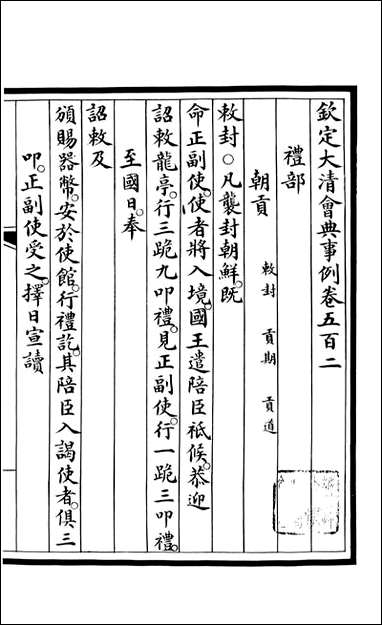 欽定大清會典事例卷五百二
禮部
朝貢 敕封 貢期 貢道
敕封○凡襲封朝鮮。既
命正副使。使者將入境。國王遣陪臣祗候。恭迎
詔敕龍亭。行三跪九叩禮。見正副使。行一跪三叩禮。
至國日。奉
詔敕及
頒賜器幣。安於使館。行禮訖。其陪臣入謁使者。俱三
叩。正副使受之。擇日宣讀